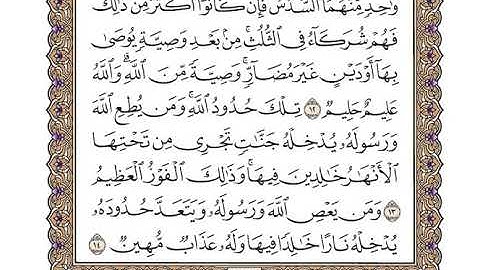 وَٰحِدٖ مِّنۡهُمَا ٱلسُّدُسُۚ فَإِن كَانُوٓاْ أَكۡثَرَ مِن ذَٰلِكَ
فَهُمۡ شُرَكَآءُ فِي ٱلثُّلُثِۚ مِنۢ بَعۡدِ وَصِيَّةٖ يُوصَىٰ
بِهَآ أَوۡ دَيۡنٍ غَيۡرَ مُضَآرّٖۚ وَصِيَّةٗ مِّنَ ٱللَّهِۗ وَٱللَّهُ
عَلِيمٌ حَلِيمٞ ١٢ تِلۡكَ حُدُودُ ٱللَّهِۚ وَمَن يُطِعِ ٱللَّهَ
وَرَسُولَهُۥ يُدۡخِلۡهُ جَنَّٰتٖ تَجۡرِي مِن تَحۡتِهَا
ٱلۡأَنۡهَٰرُ خَٰلِدِينَ فِيهَاۚ وَذَٰلِكَ ٱلۡفَوۡزُ ٱلۡعَظِيمُ
١٣ وَمَن يَعۡصِ ٱللَّهَ وَرَسُولَهُۥ وَيَتَعَدَّ حُدُودَهُۥ
يُدۡخِلۡهُ نَارًا خَٰلِدٗا فِيهَا وَلَهُۥ عَذَابٞ مُّهِينٞ ١٤